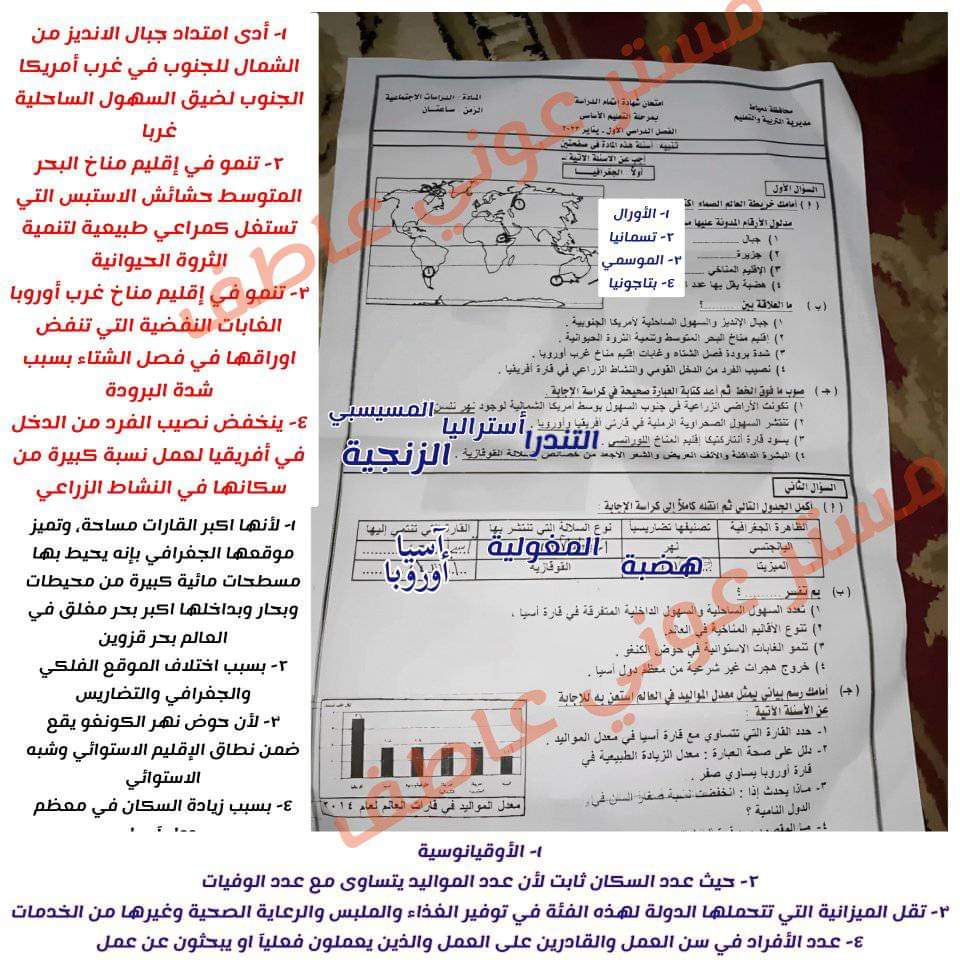 ١- أدى امتداد جبال الانديز من
الشمال للجنوب في غرب أمريكا
الجنوب لضيق السهول الساحلية
غربا
٢- تنمو في إقليم مناخ البحر
المتوسط حشائش الاستبس التي
تستغل كمراعي طبيعية لتنمية
الثروة الحيوانية
٣- تنمو في إقليم مناخ غرب أوروبا
الغابات النفضية التي تنفض
اوراقها في فصل الشتاء بسبب
شدة البرودة
٤- ينخفض نصيب الفرد من الدخل
في أفريقيا لعمل نسبة كبيرة من
سكانها في النشاط الزراعي
١- لأنها اكبر القارات مساحة، وتميز
موقعها الجغرافي بإنه يحيط بها
مسطحات مائية كبيرة من محيطات
وبحار وبداخلها اكبر بحر مغلق في
العالم بحر قزوين
٢- بسبب اختلاف الموقع الفلكي
والجغرافي والتضاريس
٣- لأن حوض نهر الكونغو يقع
ضمن نطاق الإقليم الاستوائي وشبه
الاستوائي
٤- بسبب زيادة السكان في معظم
محافظة دمياط
مديرية التربية والتعليم
امتحان شهادة إتمام الدراسة
بمرحلة التعليم الأساسي
الفصل الدراسي الأول - يناير ٢٠٢٣
المادة : الدراسات الاجتماعية
الزمن : ساعتان
تنبيه : أسئلة هذه المادة في صفحتين
أجب عن الأسئلة الآتية :-
أولاً : الجغرافيا
السؤال الأول
( أ ) أمامك خريطة العالم الصماء
مدلول الأرقام المدونة عليها
١) جبال
٢) جزيرة
٣) الإقليم المناخي
٤) هضبة يقل بها عدد
١- الأورال
٢- تسمانيا
٣- الموسمي
٤- بتاجونيا
(ب ) ما العلاقة بين .........؟
١) جبال الإنديز والسهول الساحلية لأمريكا الجنوبية .
٢) إقليم مناخ البحر المتوسط وتنمية الثروة الحيوانية .
٣) شدة برودة فصل الشتاء وغابات إقليم مناخ غرب أوروبا .
٤) نصيب الفرد من الدخل القومي والنشاط الزراعي في قارة أفريقيا .
(جـ) صوب ما فوق الخط ثم أعد كتابة العبارة صحيحة في كراسة الإجابة .
١) تكونت الأراضي الزراعية في جنوب السهول بوسط أمريكا الشمالية لوجود نهر نلسن
المسيسبي
٢) تنتشر السهول الصحراوية الرملية في قارتي أفريقيا وأوروبا .
أستراليا
٣) يسود قارة أنتاركتيكا إقليم المناخ اللورانسي .
التندرا
٤) البشرة الداكنة والأنف العريض والشعر الأجعد من خصائص السلالة القوقازية .
الزنجية
السؤال الثاني
( أ ) أكمل الجدول التالي ثم انقله كاملاً إلى كراسة الإجابة
الظاهرة الجغرافية تصنيفها تضاريسياً نوع السلالة التي تنتشر بها القارة التي تنتمي إليها
اليانجتسي نهر المغولية آسيا
الميزيتا هضبة القوقازية أوروبا
(ب ) بم تفسر .........؟
١) تعدد السهول الساحلية والسهول الداخلية المتفرقة في قارة أسيا .
٢) تنوع الأقاليم المناخية في العالم.
٣) تنمو الغابات الاستوائية في حوض الكنغو .
٤) خروج هجرات غير شرعية من معظم دول أسيا .
(جـ) أمامك رسم بياني يمثل معدل المواليد في العالم استعن به للإجابة
عن الأسئلة الآتية :
١- حدد القارة التي تتساوي مع قارة أسيا في معدل المواليد .
٢- دلل على صحة العبارة : معدل الزيادة الطبيعية في
قارة أوروبا يساوي صفر .
٣- ماذا يحدث إذا : انخفضت نسبة صغار السن في
الدول النامية ؟
٤- ما المقصود
معدل المواليد في قارات العالم لعام ٢٠١٤
١- الأوقيانوسية
٢- حيث عدد السكان ثابت لأن عدد المواليد يتساوى مع عدد الوفيات
٣- تقل الميزانية التي تتحملها الدولة لهذه الفئة في توفير الغذاء والملبس والرعاية الصحية وغيرها من الخدمات
٤- عدد الأفراد في سن العمل والقادرين على العمل والذين يعملون فعلياً او يبحثون عن عمل
مستر عوني عاطف
مستر عوني عاطف